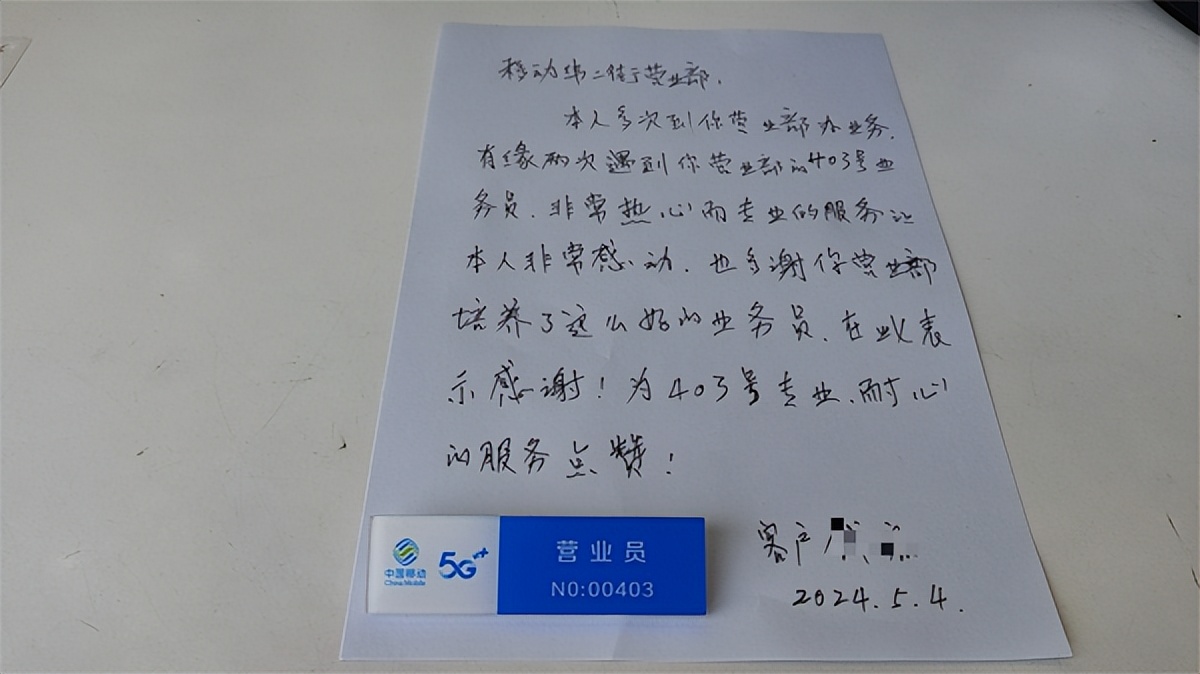 移动纬二街营业部，
本人多次到你营业部办业务，
有缘两次遇到你营业部的403号业
务员，非常热心而专业的服务让
本人非常感动，也多谢你营业部
培养了这么好的业务员，在此表
示感谢！为403号专业、耐心
的服务点赞！
客户
2024.5.4.
中国移动
China Mobile
5G++
营业员
NO:00403